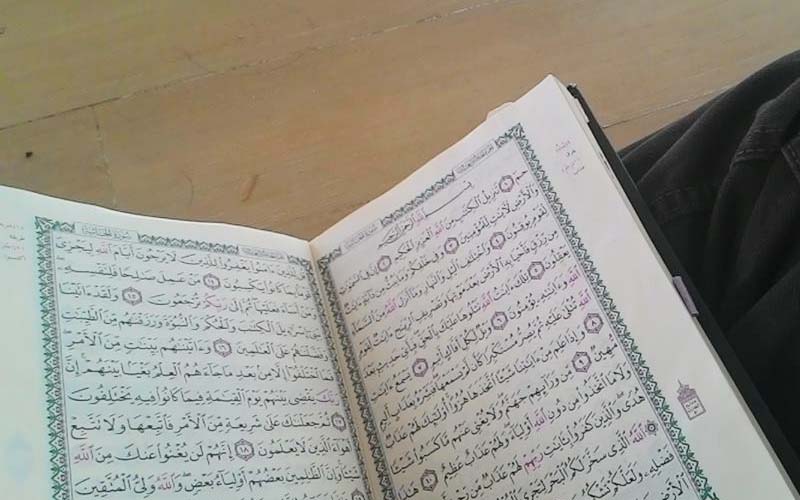 بِسْمِ اللَّهِ الرَّحْمَٰنِ الرَّحِيمِ
حمٓ ١ تَنزِيلُ الْكِتَٰبِ مِنَ اللَّهِ الْعَزِيزِ الْحَكِيمِ ٢ إِنَّ فِي السَّمَٰوَٰتِ
وَالْأَرْضِ لَءَايَٰتٍ لِّلْمُؤْمِنِينَ ٣ وَفِي خَلْقِكُمْ وَمَا يَبُثُّ مِن دَآبَّةٍ ءَايَٰتٌ
لِّقَوْمٍ يُوقِنُونَ ٤ وَاخْتِلَٰفِ الَّيْلِ وَالنَّهَارِ وَمَآ أَنزَلَ اللَّهُ مِنَ السَّمَآءِ
مِن رِّزْقٍ فَأَحْيَا بِهِ الْأَرْضَ بَعْدَ مَوْتِهَا وَتَصْرِيفِ الرِّيَٰحِ ءَايَٰتٌ لِّقَوْمٍ
يَعْقِلُونَ ٥ تِلْكَ ءَايَٰتُ اللَّهِ نَتْلُوهَا عَلَيْكَ بِالْحَقِّ فَبِأَيِّ حَدِيثٍ بَعْدَ
اللَّهِ وَءَايَٰتِهِ يُؤْمِنُونَ ٦ وَيْلٌ لِّكُلِّ أَفَّاكٍ أَثِيمٍ ٧ يَسْمَعُ ءَايَٰتِ
اللَّهِ تُتْلَىٰ عَلَيْهِ ثُمَّ يُصِرُّ مُسْتَكْبِرًا كَأَن لَّمْ يَسْمَعْهَا فَبَشِّرْهُ بِعَذَابٍ أَلِيمٍ
٨ وَإِذَا عَلِمَ مِنْ ءَايَٰتِنَا شَيْـًٔا اتَّخَذَهَا هُزُوًا أُو۟لَٰٓئِكَ لَهُمْ عَذَابٌ
مُّهِينٌ ٩ مِّن وَرَآئِهِمْ جَهَنَّمُ وَلَا يُغْنِي عَنْهُم مَّا كَسَبُوا۟ شَيْـًٔا
وَلَا مَا اتَّخَذُوا۟ مِن دُونِ اللَّهِ أَوْلِيَآءَ وَلَهُمْ عَذَابٌ عَظِيمٌ ١٠ هَٰذَا
هُدًى وَالَّذِينَ كَفَرُوا۟ بِـَٔايَٰتِ رَبِّهِمْ لَهُمْ عَذَابٌ مِّن رِّجْزٍ
اللَّهُ الَّذِي سَخَّرَ لَكُمُ الْبَحْرَ لِتَجْرِيَ
فَضْلِهِ وَلَعَلَّكُمْ
لِّلَّذِينَ ءَامَنُوا۟ يَغْفِرُوا۟ لِلَّذِينَ لَا يَرْجُونَ أَيَّامَ اللَّهِ لِيَجْزِيَ
قَوْمًا بِمَا كَانُوا۟ يَكْسِبُونَ ١٤ مَنْ عَمِلَ صَٰلِحًا فَلِنَفْسِهِ
وَمَنْ أَسَآءَ فَعَلَيْهَا ثُمَّ إِلَىٰ رَبِّكُمْ تُرْجَعُونَ ١٥ وَلَقَدْ ءَاتَيْنَا
بَنِيٓ إِسْرَٰٓءِيلَ الْكِتَٰبَ وَالْحُكْمَ وَالنُّبُوَّةَ وَرَزَقْنَٰهُم مِّنَ الطَّيِّبَٰتِ
وَفَضَّلْنَٰهُمْ عَلَى الْعَٰلَمِينَ ١٦ وَءَاتَيْنَٰهُم بَيِّنَٰتٍ مِّنَ الْأَمْرِ
فَمَا اخْتَلَفُوٓا۟ إِلَّا مِنۢ بَعْدِ مَا جَآءَهُمُ الْعِلْمُ بَغْيًۢا بَيْنَهُمْ إِنَّ
رَبَّكَ يَقْضِي بَيْنَهُمْ يَوْمَ الْقِيَٰمَةِ فِيمَا كَانُوا۟ فِيهِ يَخْتَلِفُونَ
١٧ ثُمَّ جَعَلْنَٰكَ عَلَىٰ شَرِيعَةٍ مِّنَ الْأَمْرِ فَاتَّبِعْهَا وَلَا تَتَّبِعْ
أَهْوَآءَ الَّذِينَ لَا يَعْلَمُونَ ١٨ إِنَّهُمْ لَن يُغْنُوا۟ عَنكَ مِنَ اللَّهِ
شَيْـًٔا وَإِنَّ الظَّٰلِمِينَ بَعْضُهُمْ أَوْلِيَآءُ بَعْضٍ وَاللَّهُ وَلِيُّ الْمُتَّقِينَ